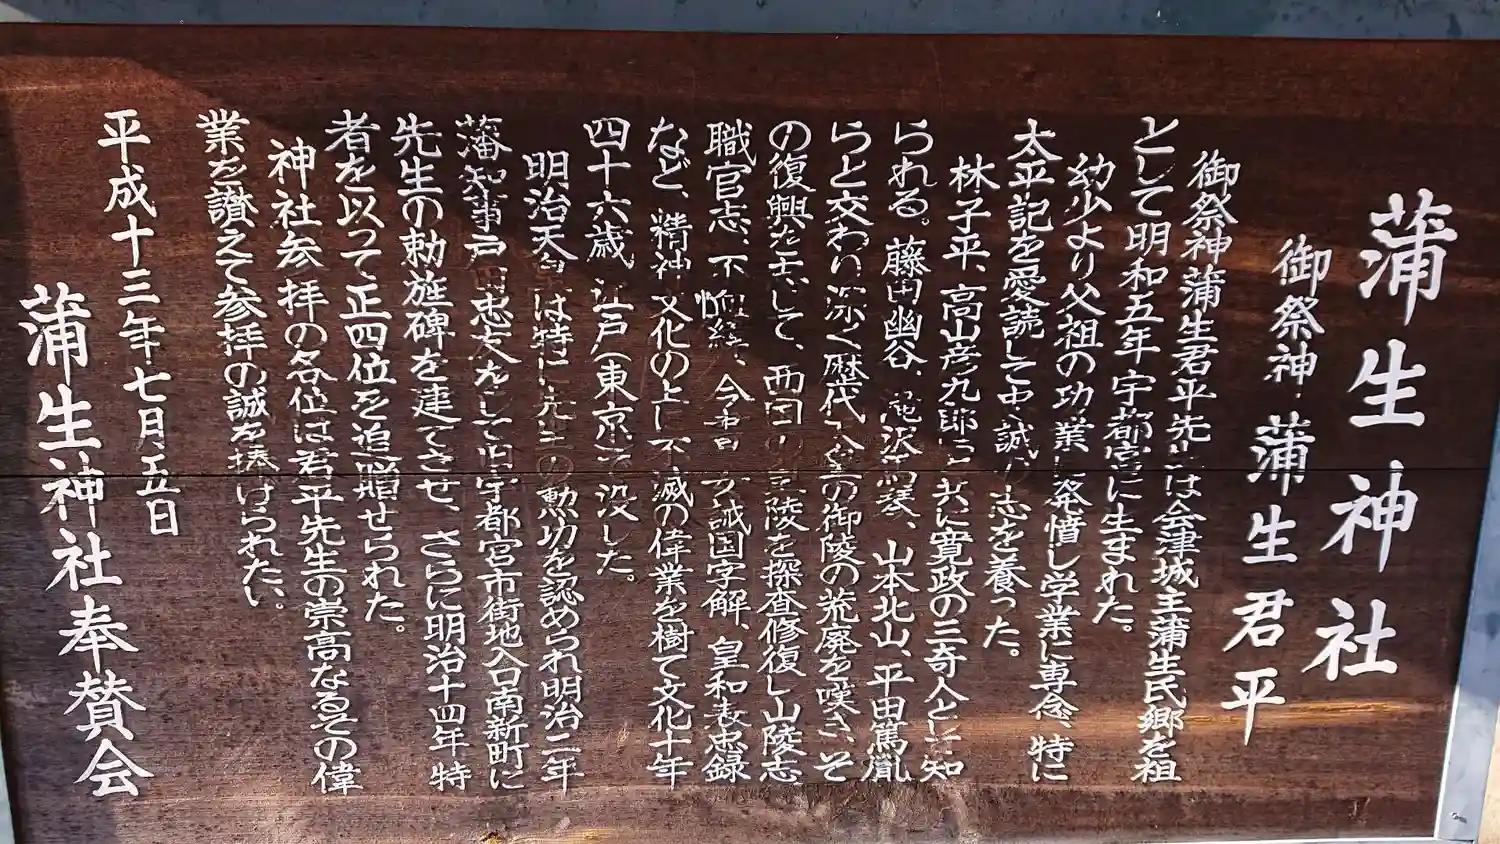 蒲生神社
御祭神 蒲生君平
御祭神蒲生君平先生は会津城主蒲生氏郷を祖
として明和五年宇都宮に生まれた。
幼少より父祖の功業に発憤し学業に専念、特に
太平記を愛読して忠誠の志を養った。
林子平、高山彦九郎と共に寛政の三奇人として知
られる。藤田幽谷、滝沢馬琴、山本北山、平田篤胤
らと交わり深く歴代天皇の御陵の荒廃を嘆き、そ
の復興を志して、両回の山陵を探査修復し山陵志
職官志、不恤緯、今書 女誡国字解、皇和表忠録
など、精神文化の上に不滅の偉業を樹て文化十年
四十六歳江戸(東京)で没した。
明治天皇は特に先生の勲功を認められ明治二年
藩知事戸田忠友をして旧宇都宮市街地入口南新町に
先生の勅旌碑を建てさせ、さらに明治十四年特
者を以って正四位を追贈せられた。
神社参拝の各位は君平先生の崇高なるその偉
業を讃えて参拝の誠を捧げられたい。
平成十三年七月五日
蒲生神社奉賛会